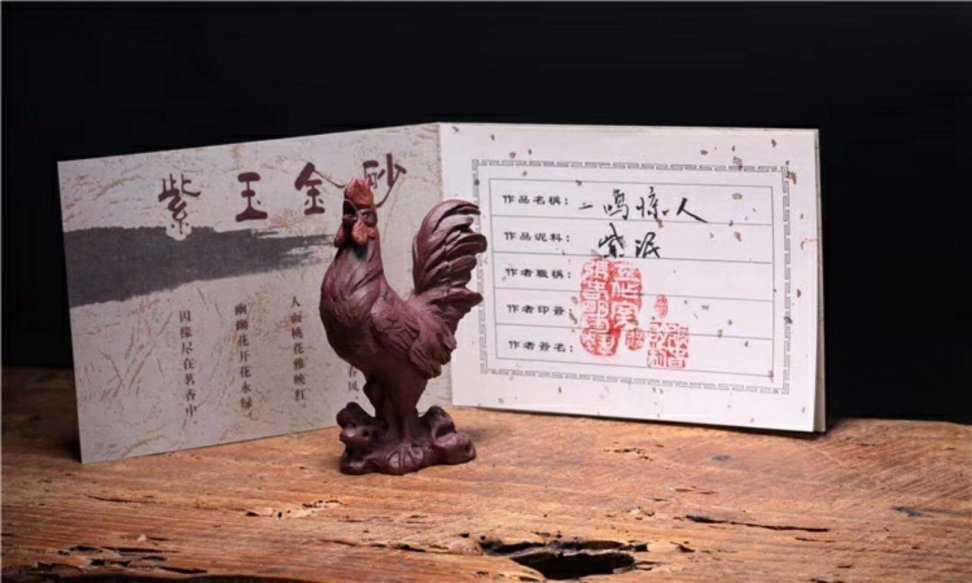 紫玉金砂
人面桃花雅映红
幽幽花开花永绿
因缘尽在茗杏中
作品名稱：一鸣惊人
作品泥料：紫泥
作者職稱：
作者印簽：
作者簽名：